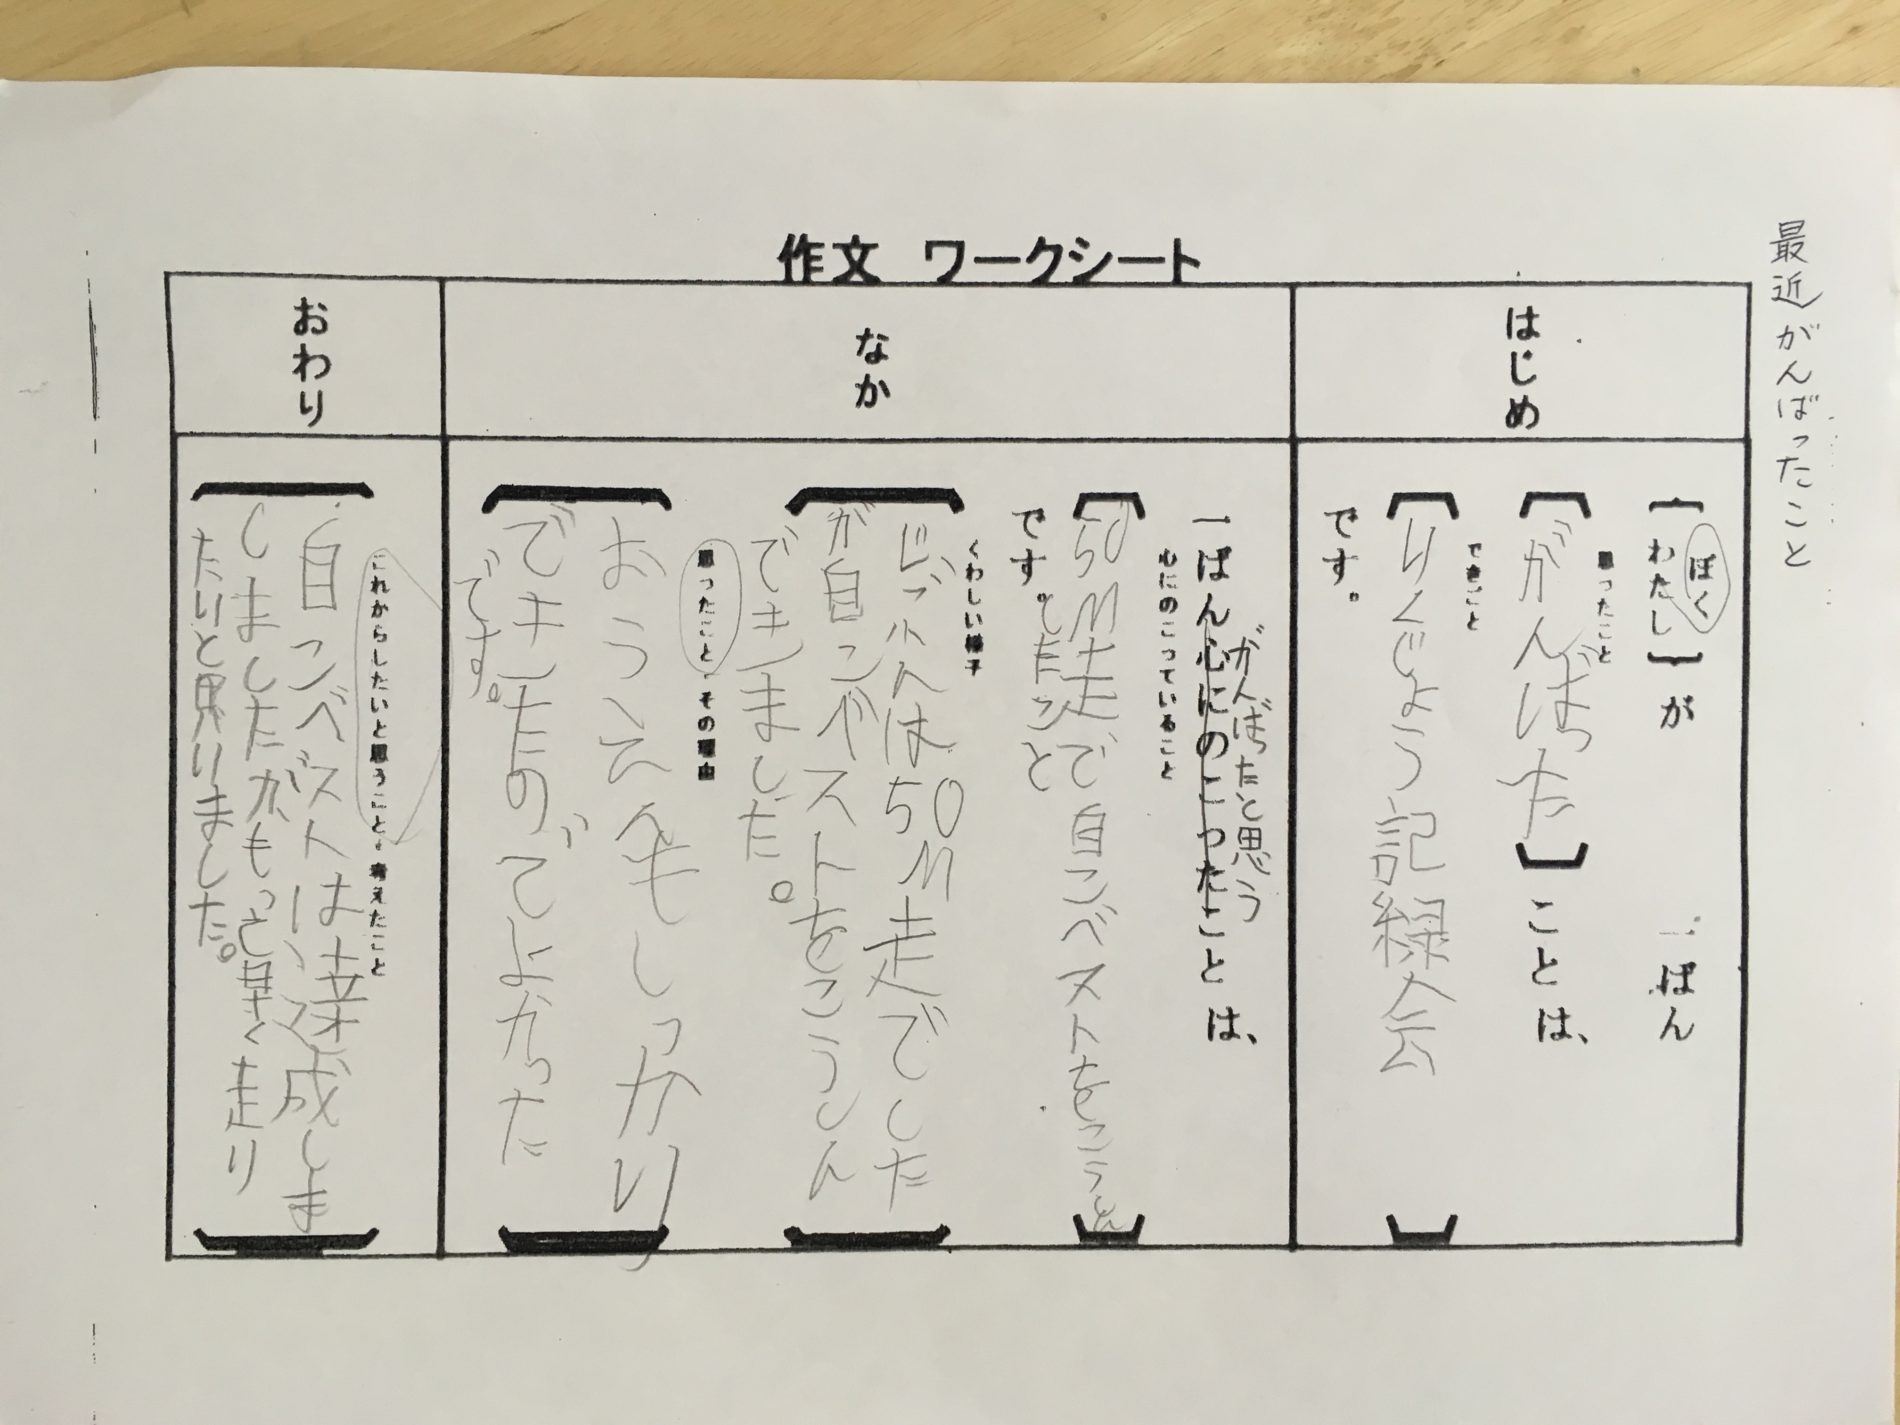 最近がんばったこと
作文 ワークシート
はじめ
【ぼく
わたし】が 一ばん
思ったこと
【がんばった】ことは、
できごと
【りくじょう記録会】
です。
なか
がんばったと思う
一ばん心にのこったことは、
心にのこっていること
【50M走で自コンベストをこうしん】
したこと
です。
くわしい様子
【じつは50M走でした
が自コンベストをこうしん
できました。】
思ったこと・その理由
【おうえんもしっかり
できたのでよかった
です。】
おわり
これからしたいと思うこと・考えたこと
【自コンベストは達成しま
しましたがもっと早く走り
たいと思いました。】